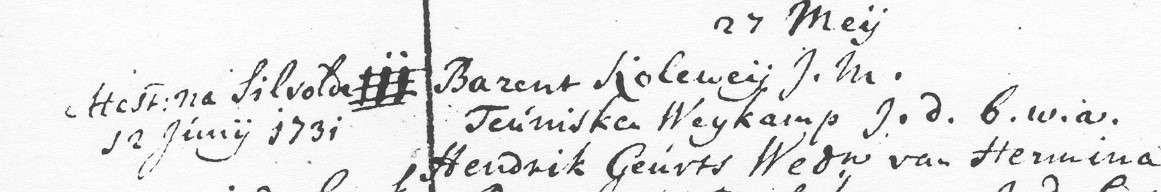 27 Meij
Att: na Silvolde
12 Junij 1731
Barent Koleweij J. M.
Teuniske Weykamp J. d. b. w. a.
Hendrik Geurts Wedr van Hermina